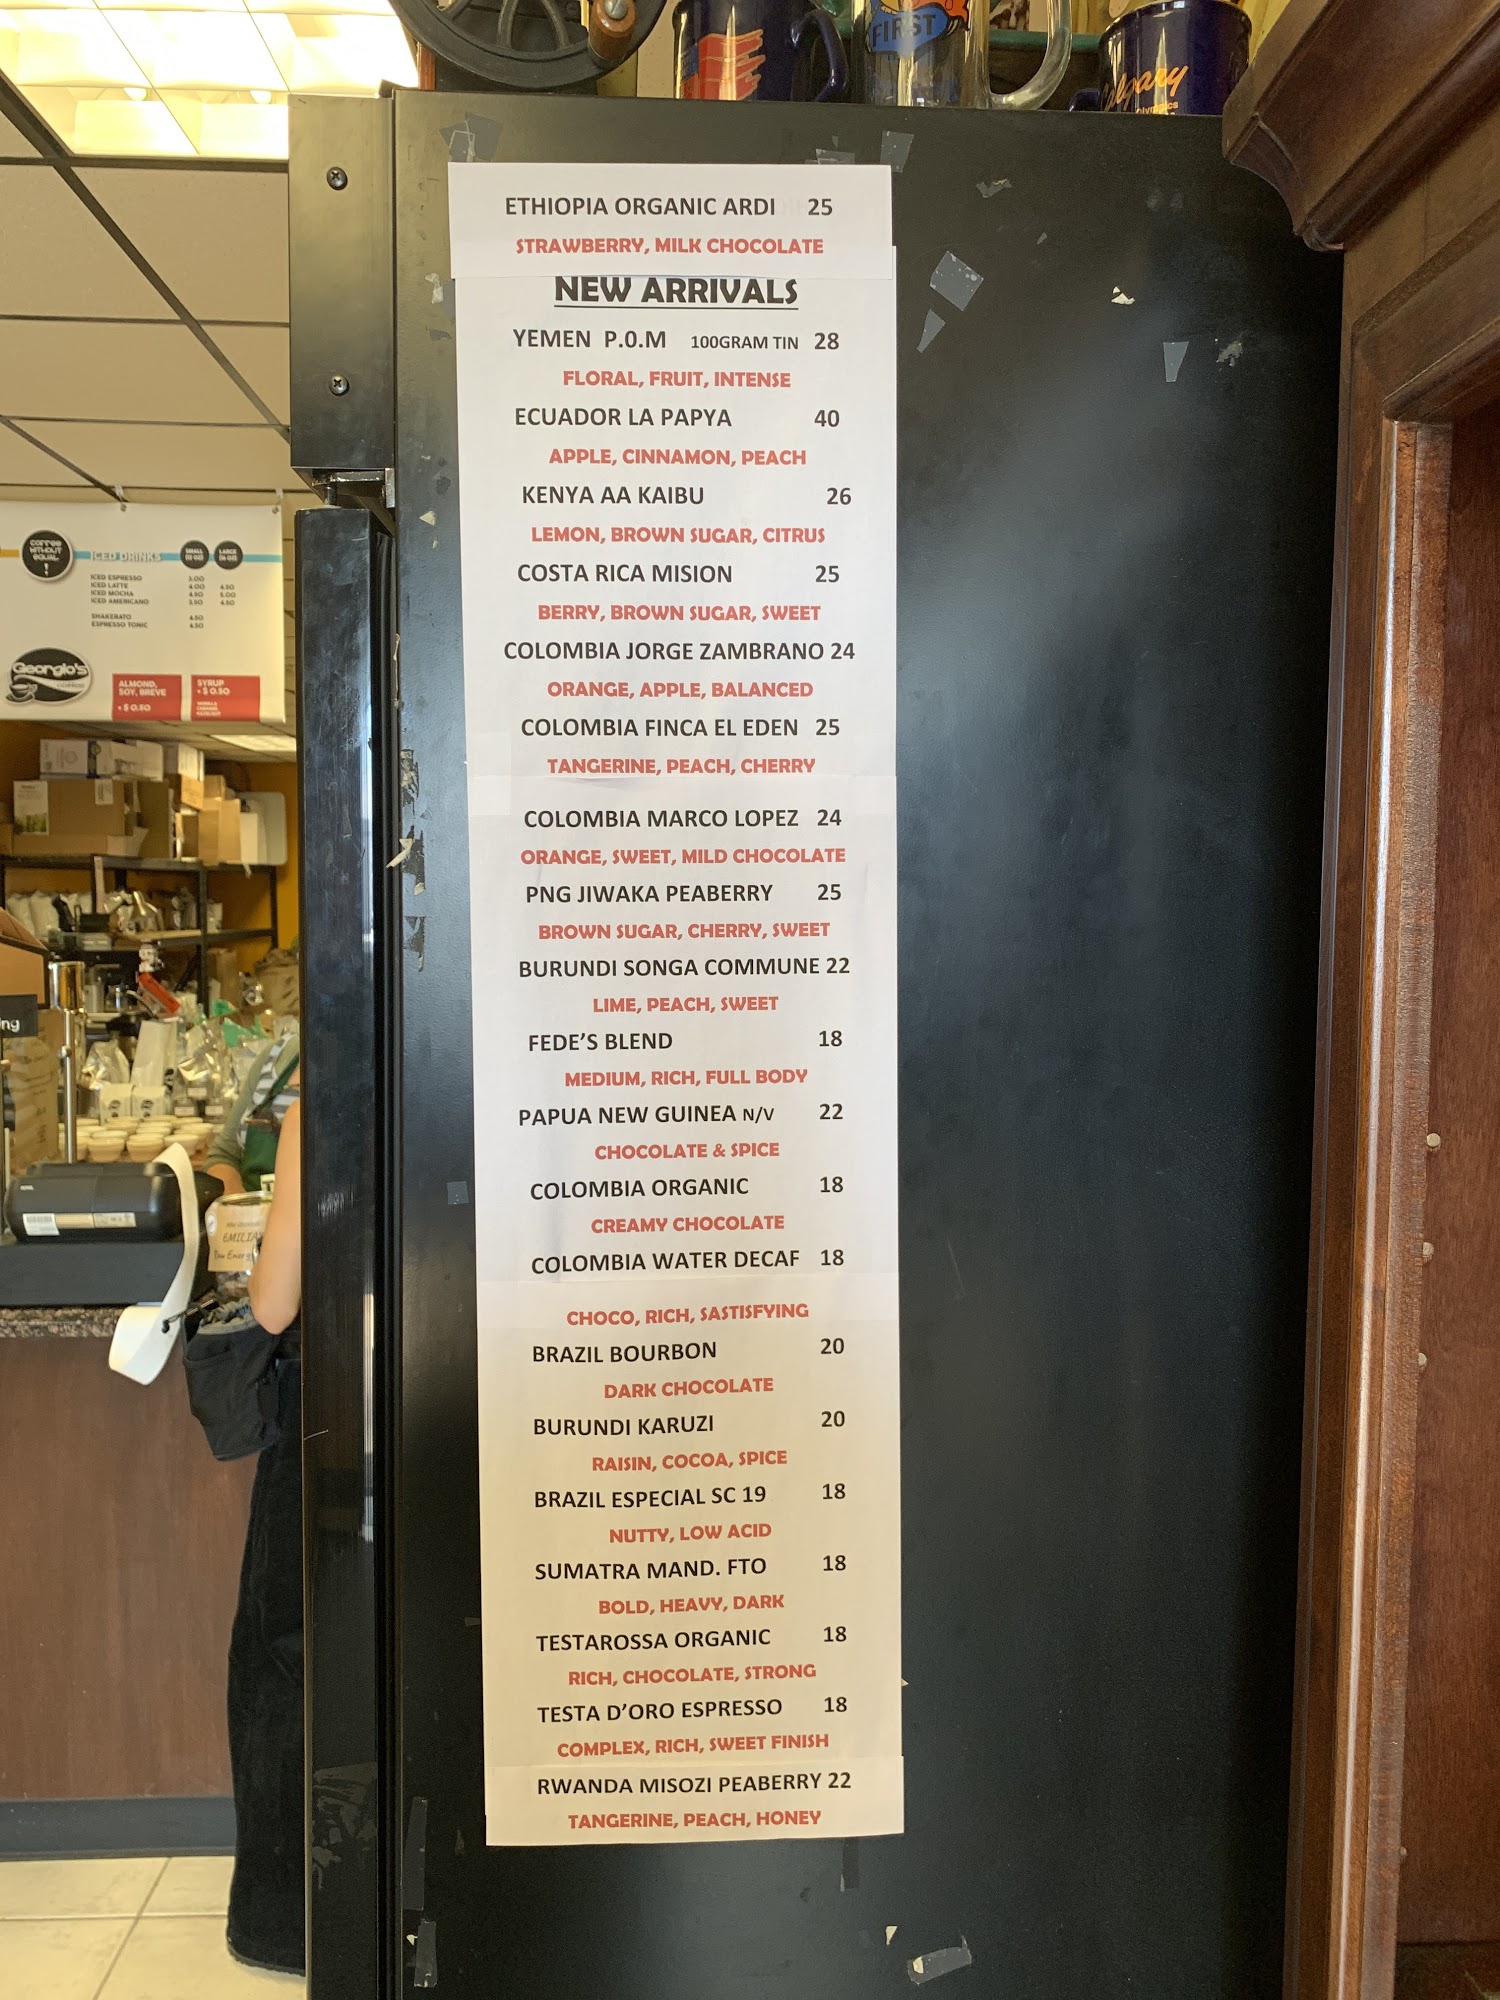 FIRST
Calgary
Olympics
ETHIOPIA ORGANIC ARDI 25
STRAWBERRY, MILK CHOCOLATE
NEW ARRIVALS
YEMEN P.0.M 100GRAM TIN 28
FLORAL, FRUIT, INTENSE
ECUADOR LA PAPYA 40
APPLE, CINNAMON, PEACH
KENYA AA KAIBU 26
LEMON, BROWN SUGAR, CITRUS
COSTA RICA MISION 25
BERRY, BROWN SUGAR, SWEET
COLOMBIA JORGE ZAMBRANO 24
ORANGE, APPLE, BALANCED
COLOMBIA FINCA EL EDEN 25
TANGERINE, PEACH, CHERRY
COLOMBIA MARCO LOPEZ 24
ORANGE, SWEET, MILD CHOCOLATE
PNG JIWAKA PEABERRY 25
BROWN SUGAR, CHERRY, SWEET
BURUNDI SONGA COMMUNE 22
LIME, PEACH, SWEET
FEDE'S BLEND 18
MEDIUM, RICH, FULL BODY
PAPUA NEW GUINEA N/V 22
CHOCOLATE & SPICE
COLOMBIA ORGANIC 18
CREAMY CHOCOLATE
COLOMBIA WATER DECAF 18
CHOCO, RICH, SASTISFYING
BRAZIL BOURBON 20
DARK CHOCOLATE
BURUNDI KARUZI 20
RAISIN, COCOA, SPICE
BRAZIL ESPECIAL SC 19 18
NUTTY, LOW ACID
SUMATRA MAND. FTO 18
BOLD, HEAVY, DARK
TESTAROSSA ORGANIC 18
RICH, CHOCOLATE, STRONG
TESTA D'ORO ESPRESSO 18
COMPLEX, RICH, SWEET FINISH
RWANDA MISOZI PEABERRY 22
TANGERINE, PEACH, HONEY
COFFEE
WITHOUT
EQUAL
!
ICED DRINKS SMALL LARGE
ICED ESPRESSO 3.00
ICED LATTE 4.00 4.50
ICED MOCHA 4.50 5.00
ICED AMERICANO 3.50 4.50
SHAKERATO 4.50
ESPRESSO TONIC 4.50
Georgio's
ALMOND,
SOY, BREVE
+ $0.50
SYRUP
+ $0.50
ng
EMILIA